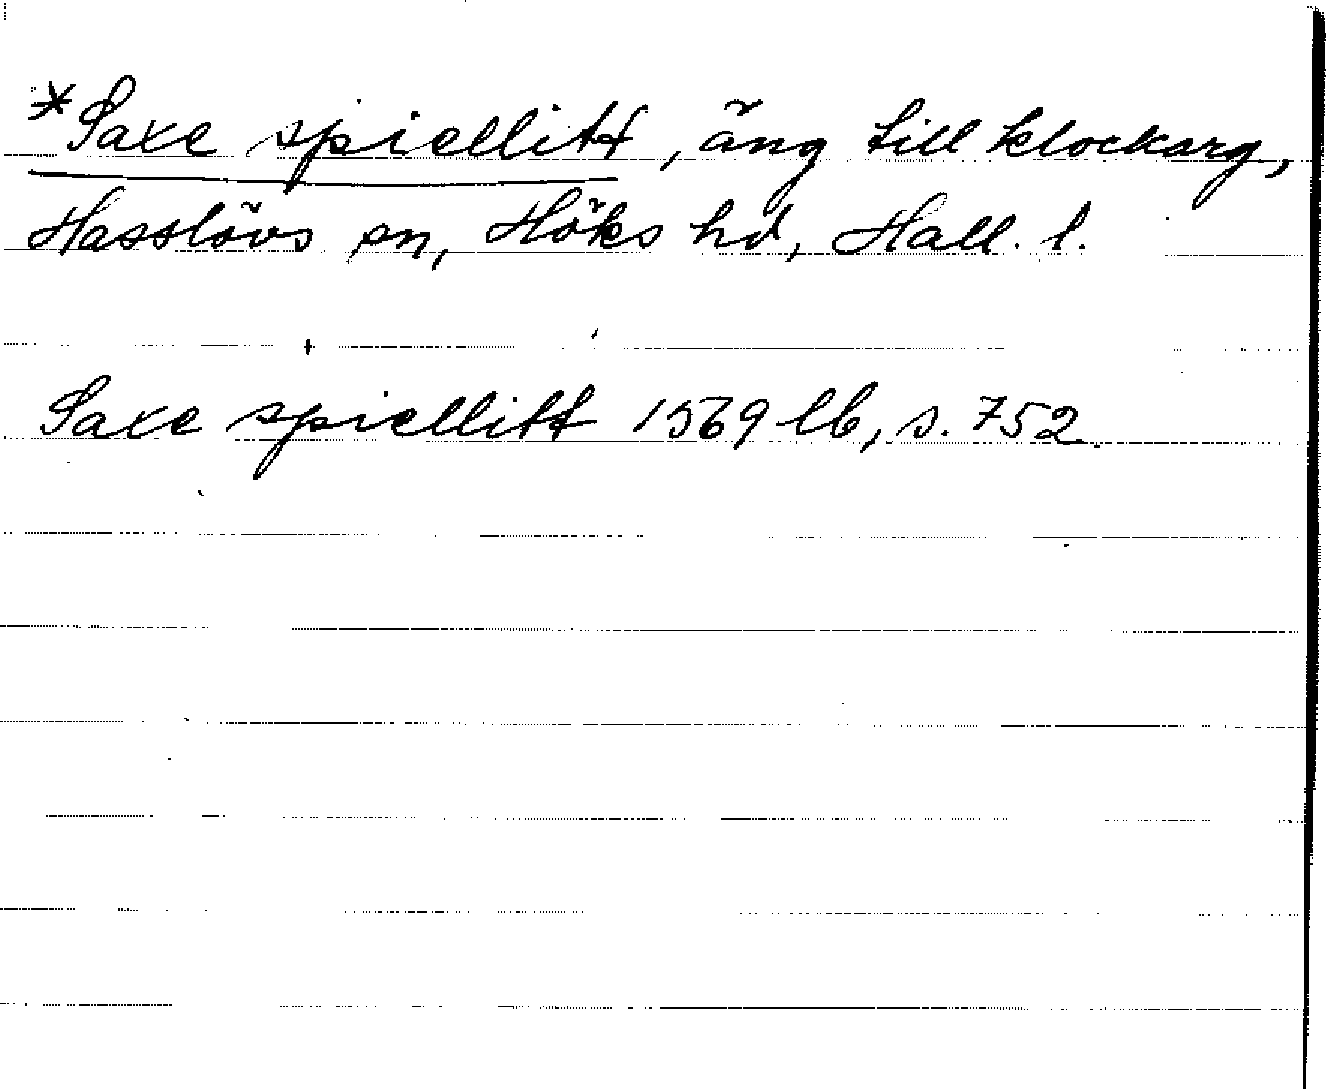 *Saxe spiellitt, äng till klockarg,
Hasslövs sn, Höks hd, Hall. l.
Saxe spiellitt 1569 lb, s. 752.